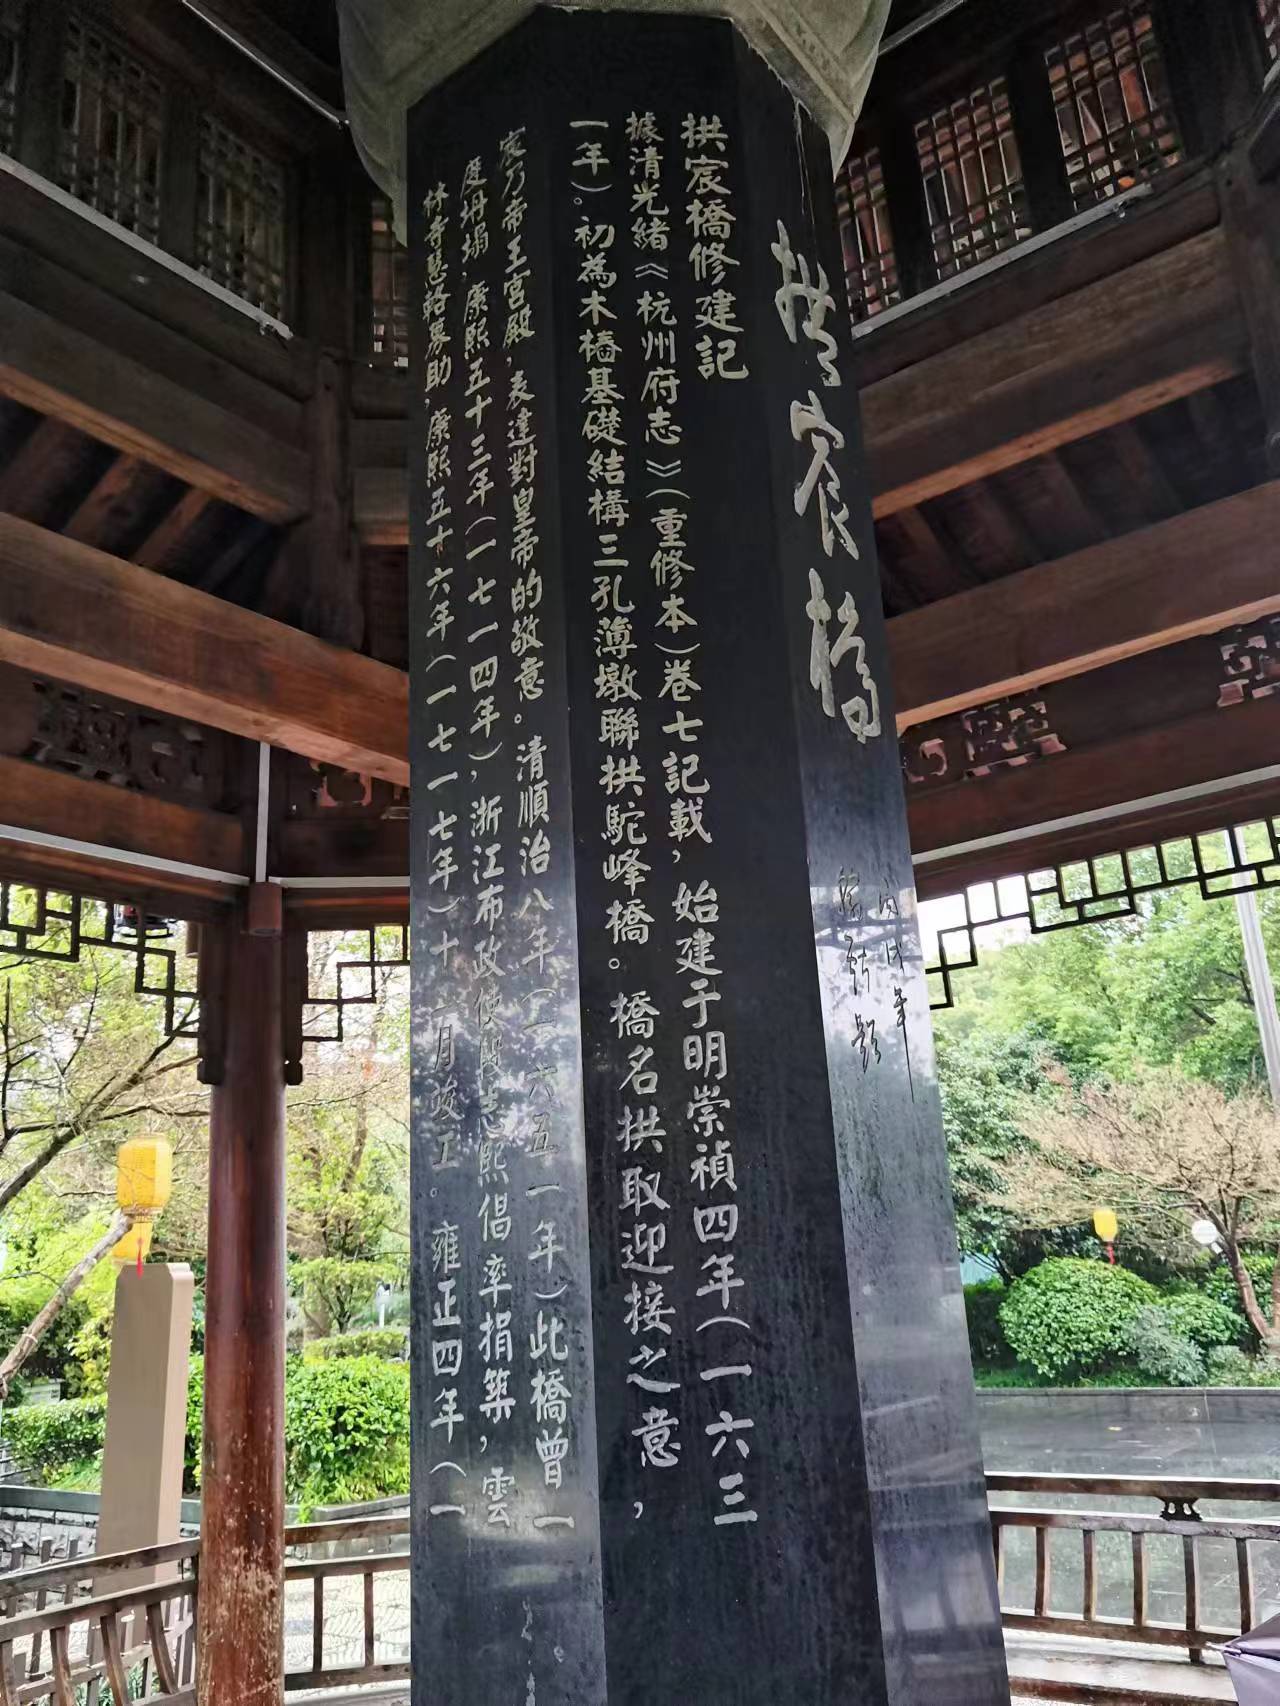 拱宸橋
拱宸橋修建記
據清光緒《杭州府志》（重修本）卷七記載，始建于明崇禎四年（一六三
一年）。初為木樁基礎結構三孔薄墩聯拱駝峰橋。橋名拱取迎接之意，
宸乃帝王宮殿，表達對皇帝的敬意。清順治八年（一六五一年）此橋曾一
度坍塌，康熙五十三年（一七一四年），浙江布政使段志熙倡率捐築，雲
林寺慧輅募助，康熙五十六年（一七一七年）十二月竣工。雍正四年（一